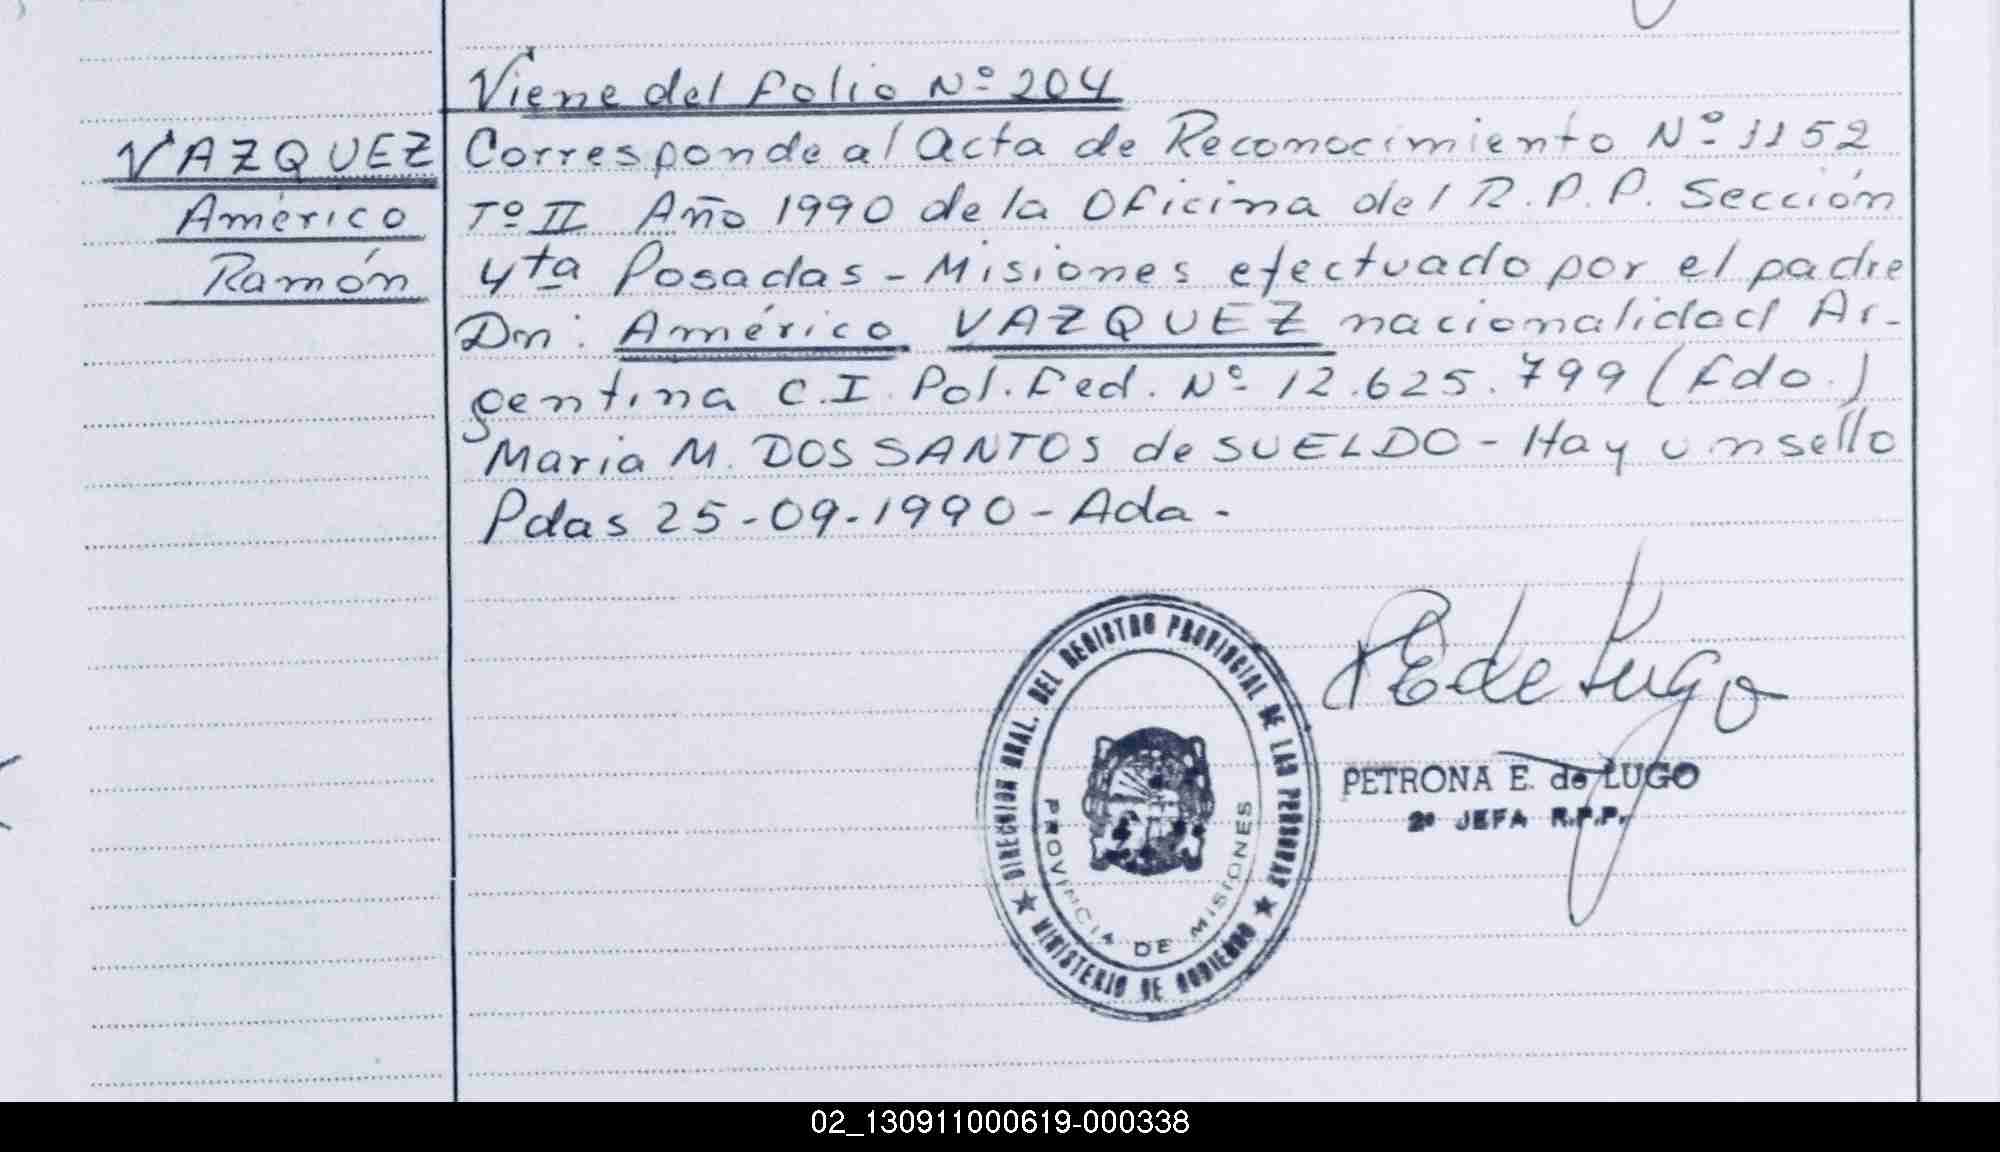 Viene del folio Nº 204
VAZQUEZ
Américo
Ramón
Corresponde al Acta de Reconocimiento Nº 1152
Tº II Año 1990 de la Oficina del R.P.P. Sección
4ta Posadas - Misiones efectuado por el padre
Dn: Américo VAZQUEZ nacionalidad Ar-
gentina C.I. Pol. Fed. Nº 12.625.799 (fdo.)
Maria M. DOS SANTOS de SUELDO - Hay un sello
Pdas 25-09-1990 - Ada -
PE de Lugo
PETRONA E. de LUGO
2º JEFA R.P.P.
DIRECCION GRAL. DEL REGISTRO PROVINCIAL DE LAS PERSONAS
★ MINISTERIO DE GOBIERNO ★
PROVINCIA DE MISIONES
02_130911000619-000338